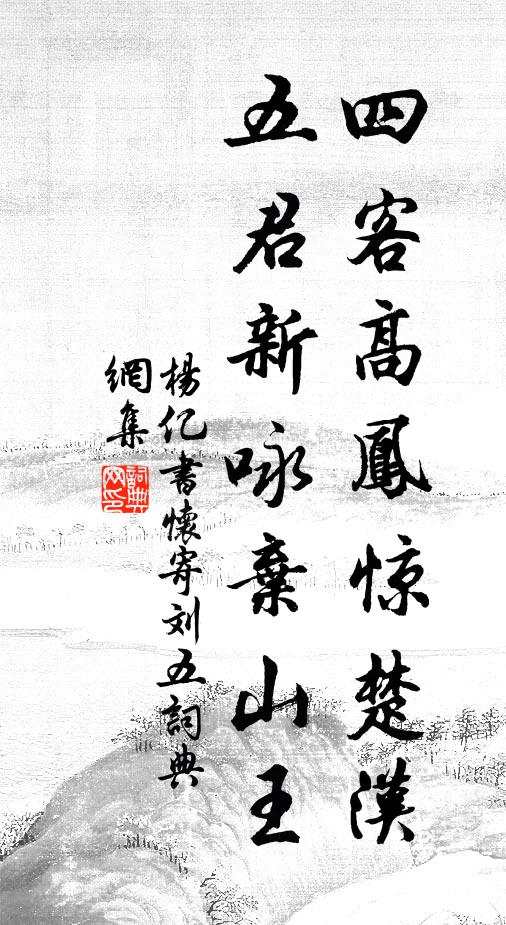 四客高鳳惊楚漢
五君新咏棄山王
楊亿書懷寄刘五詞典
網集
詞典网印